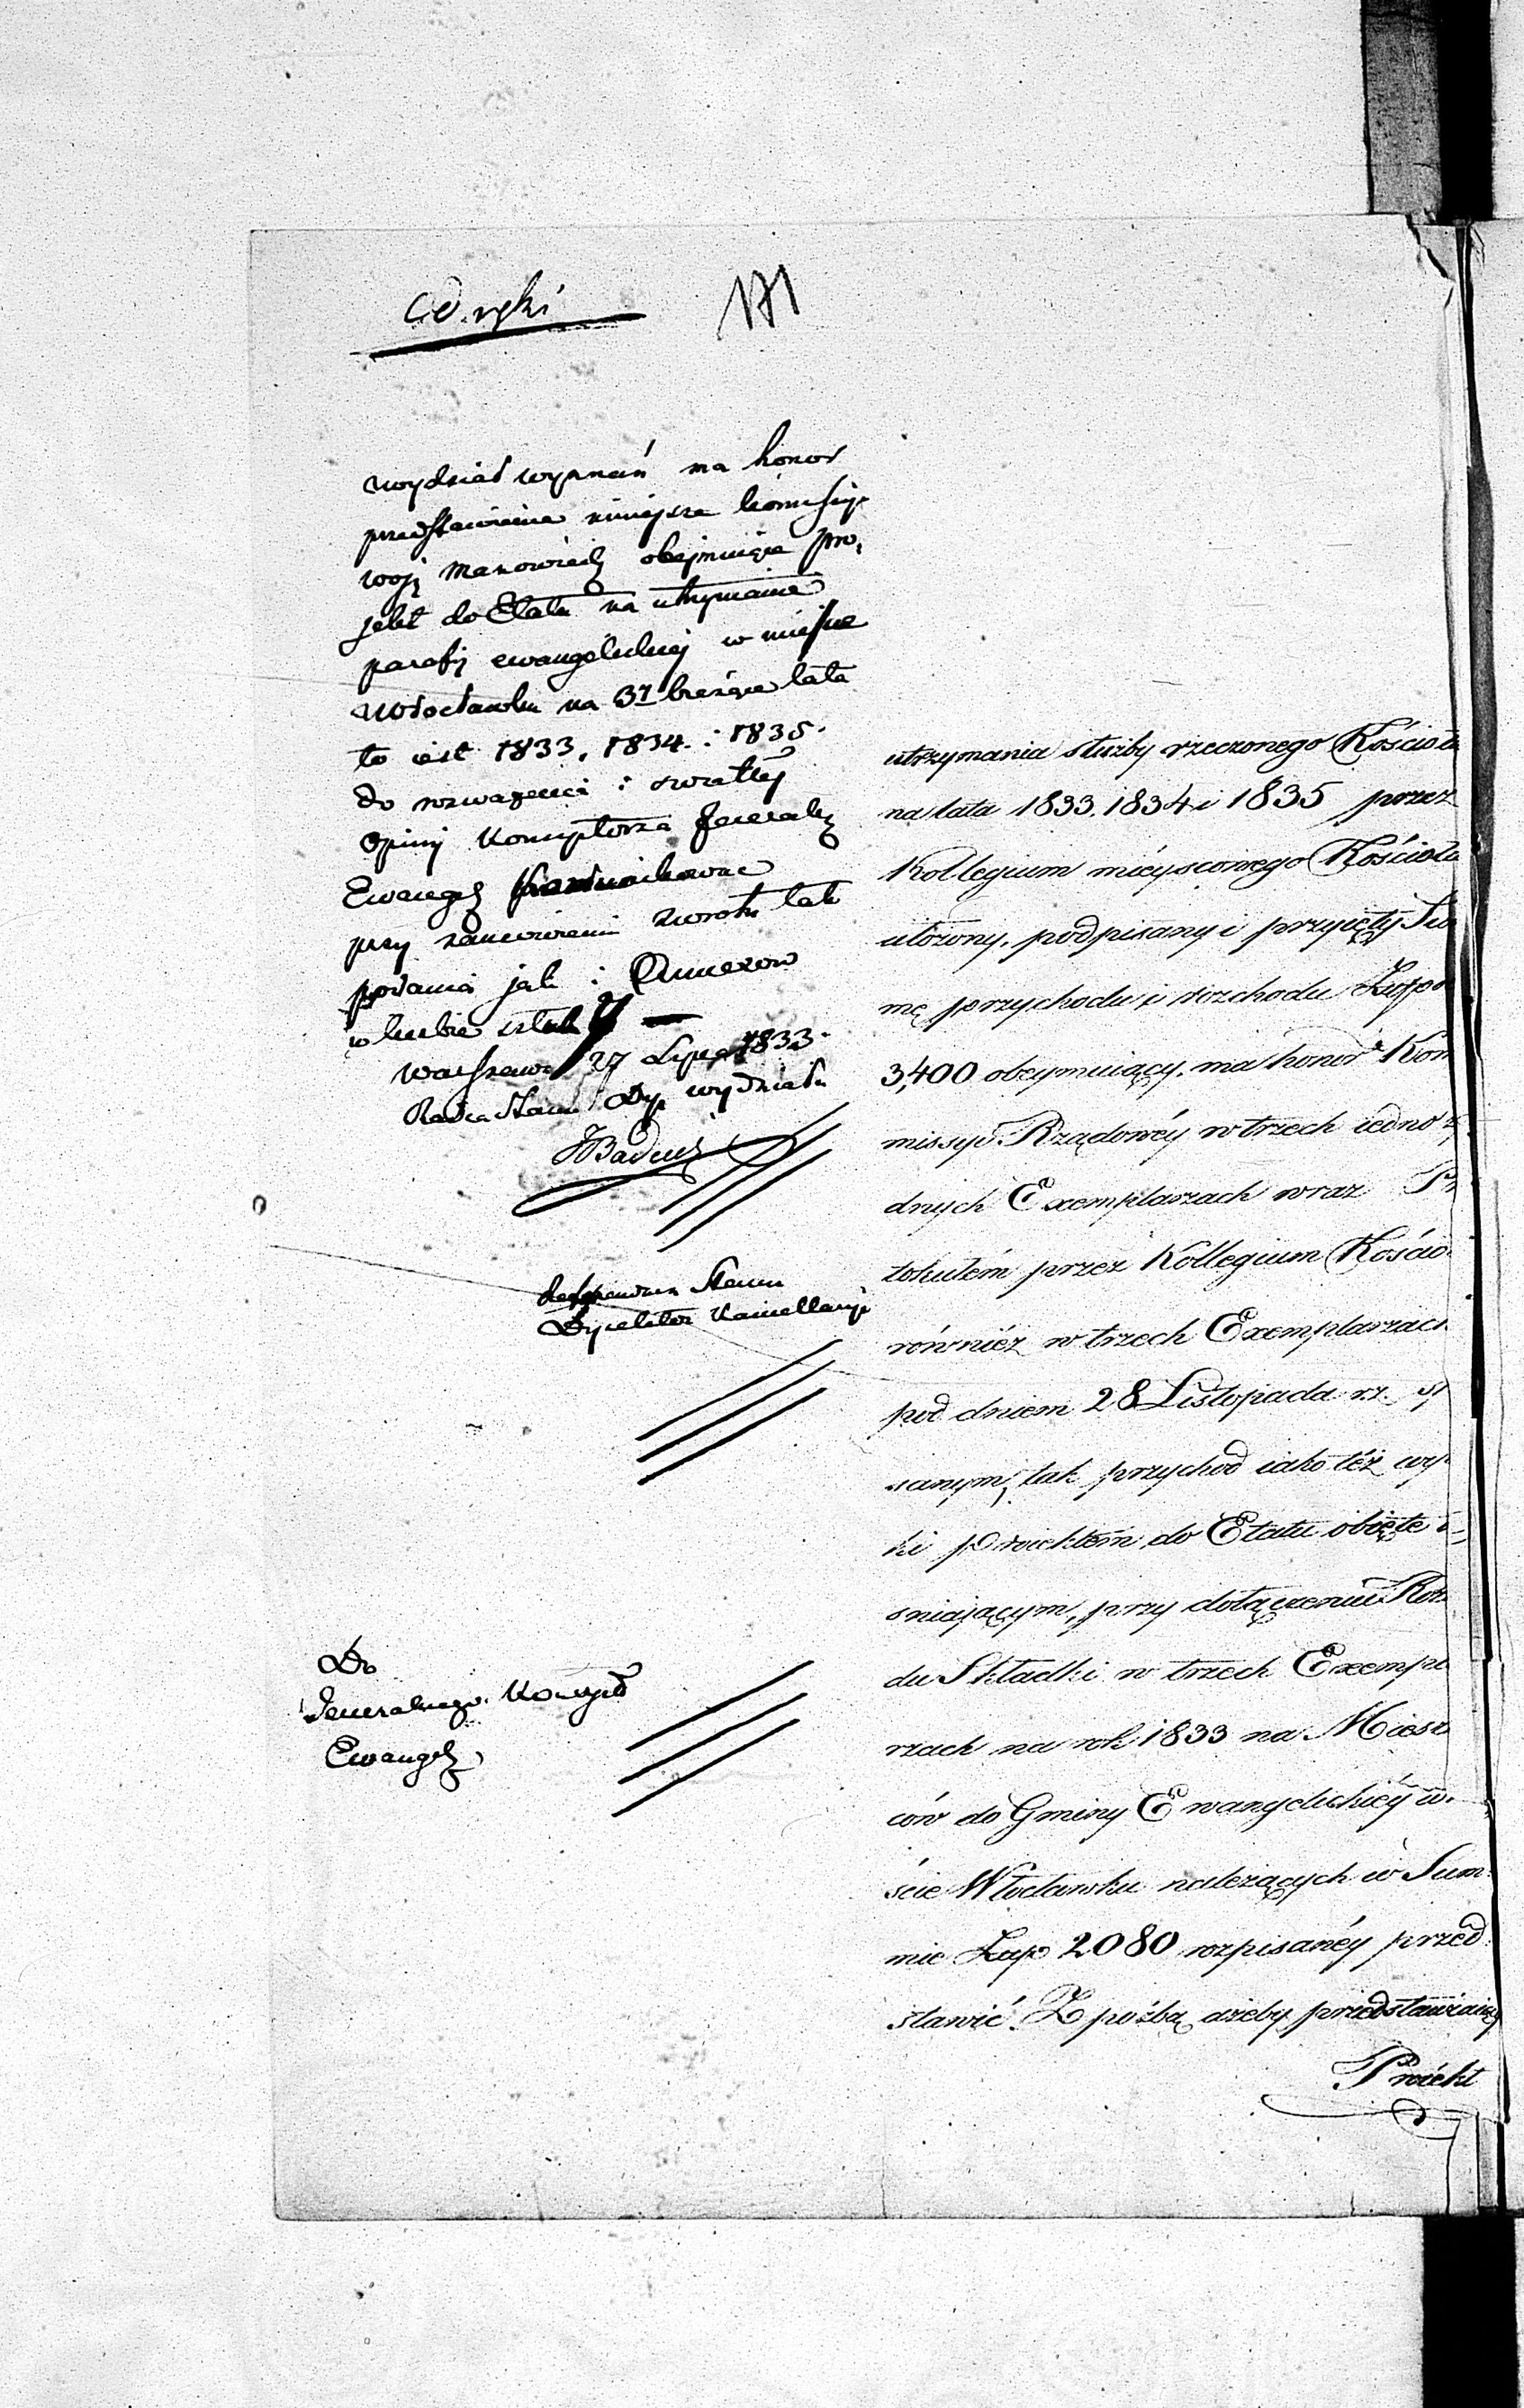 171
wydział wyznań ma honor
przedstawienie niniejsze kommissyi
woj: Mazowieckj obejmujące pro,
jekt do Etatu na utrzymanie
parafij ewangelickiej w mieście
Włocławku na 3y bieżące lata
to iest 1833, 1834. i 1835.
do rozważenia i światłej
Opinij Konsystorza Jeneralg
Ewangel
przy zamówieniu zwrotu tak
podania jak i Annexow
w liczbie sztuk
Warszawa 27 Lipca 1833.
Radca Stanu Dyr wydziału
Referendarz Stanu
Dyrektor Kancellaryi
Do
Jeneralnego Konsyst
Ewangel
utrzymania służby rzeczonego Kościoła
na lata 1833. 1834 i 1835 przez
Kollegium mieyscowego Kościoła
ułożony, podpisany i przyięty Su
mę przychodu i rozchodu Złpo
3,400 obeymuiący, ma honor Kom
missyi Rządowéy w trzech iedno z
dnych Exemplarzach wraz Pr
tokułém przez Kollegium Kościo
również w trzech Exemplarzach
pod dniem 28 Listopada r.z. sp
sanym, tak przychod iako też wy
ki proiektem do Etatu obięte
śniającym, przy dołączeniu Roz
du Składki w trzech Exempl
rzach na rok 1833 na Miesz
ców do Gminy Ewangelickiéy w
ście Włocławku należących w Sum
mie Złp 2080 rozpisanéy przed
stawić. Z proźbą ażeby przedstawiaiący
Proiekt